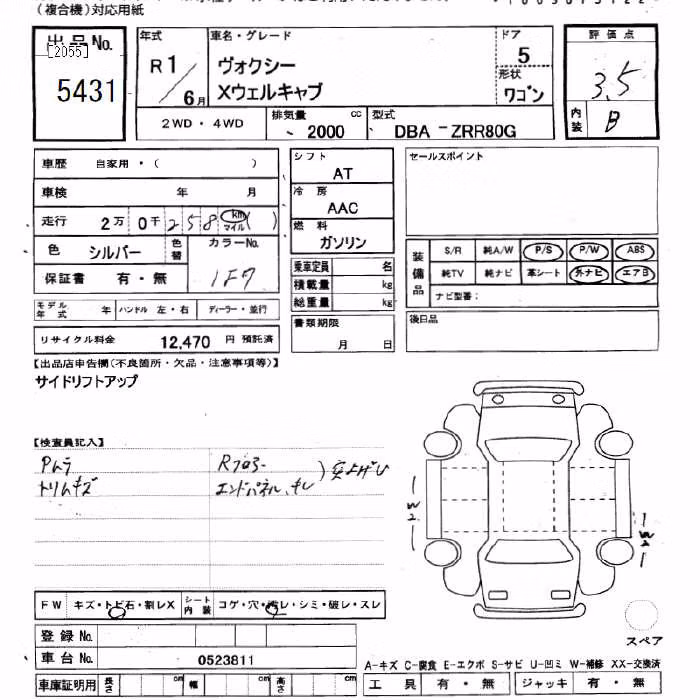 (複合機)対応用紙
出品No.
[2055]
5431
年式
R1/6月
車名・グレード
ヴォクシー
Xウェルキャブ
ドア
5
形状
ワゴン
評価点
3.5
内装
B
2WD・4WD
排気量
2000 cc
型式
DBA -ZRR80G
車歴 自家用・( )
車検 年 月
走行 2万 0千 258 km マイル ( )
色 シルバー 色替
カラーNo.
1F7
保証書 有・無
モデル年式 年 ハンドル 左・右 ディーラー・並行
リサイクル料金 12,470 円 預託済
シフト
AT
冷房
AAC
燃料
ガソリン
乗車定員 名
積載量 kg
総重量 kg
書類期限
月 日
セールスポイント
装備品
S/R 純A/W P/S P/W ABS
純TV 純ナビ 革シート 外ナビ エアB
ナビ型番:
後日品
【出品店申告欄(不良箇所・欠品・注意事項等)】
サイドリフトアップ
【検査員記入】
Pムラ
トリムキズ
Rフロアー
エンドパネル、キレ
)突上げU
W2
W2
FW キズ・トビ石・割レX
シート内装 コゲ・穴・汚レ・シミ・破レ・スレ
登録No.
車台No. 0523811
車庫証明用 長さ cm 幅 cm 高さ cm
スペア
A-キズ C-腐食 E-エクボ S-サビ U-凹ミ W-補修 XX-交換済
工具 有・無 ジャッキ 有・無